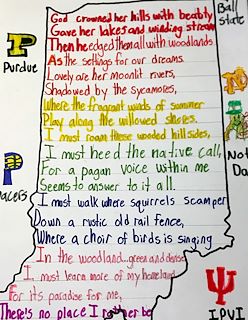 God crowned her hills with beauty
Gave her lakes and winding stream
Then he edged them all with woodlands
As the settings for our dreams.
Lovely are her moonlit rivers,
Shadowed by the Sycamores,
Where the fragrant winds of summer
Play along the willowed shores.
I must roam these wooded hillsides,
I must heed the native call,
For a pagan voice within me
Seems to answer to it all.
I must walk where squirrels scamper
Down a rustic old rail fence,
Where a choir of birds is singing
In the woodland..green and dense
I must learn more of my homeland
For its paradise for me,
There's no place I rather be
Ball
state
P
Purdue
Not
Da
P
acers
IPUI